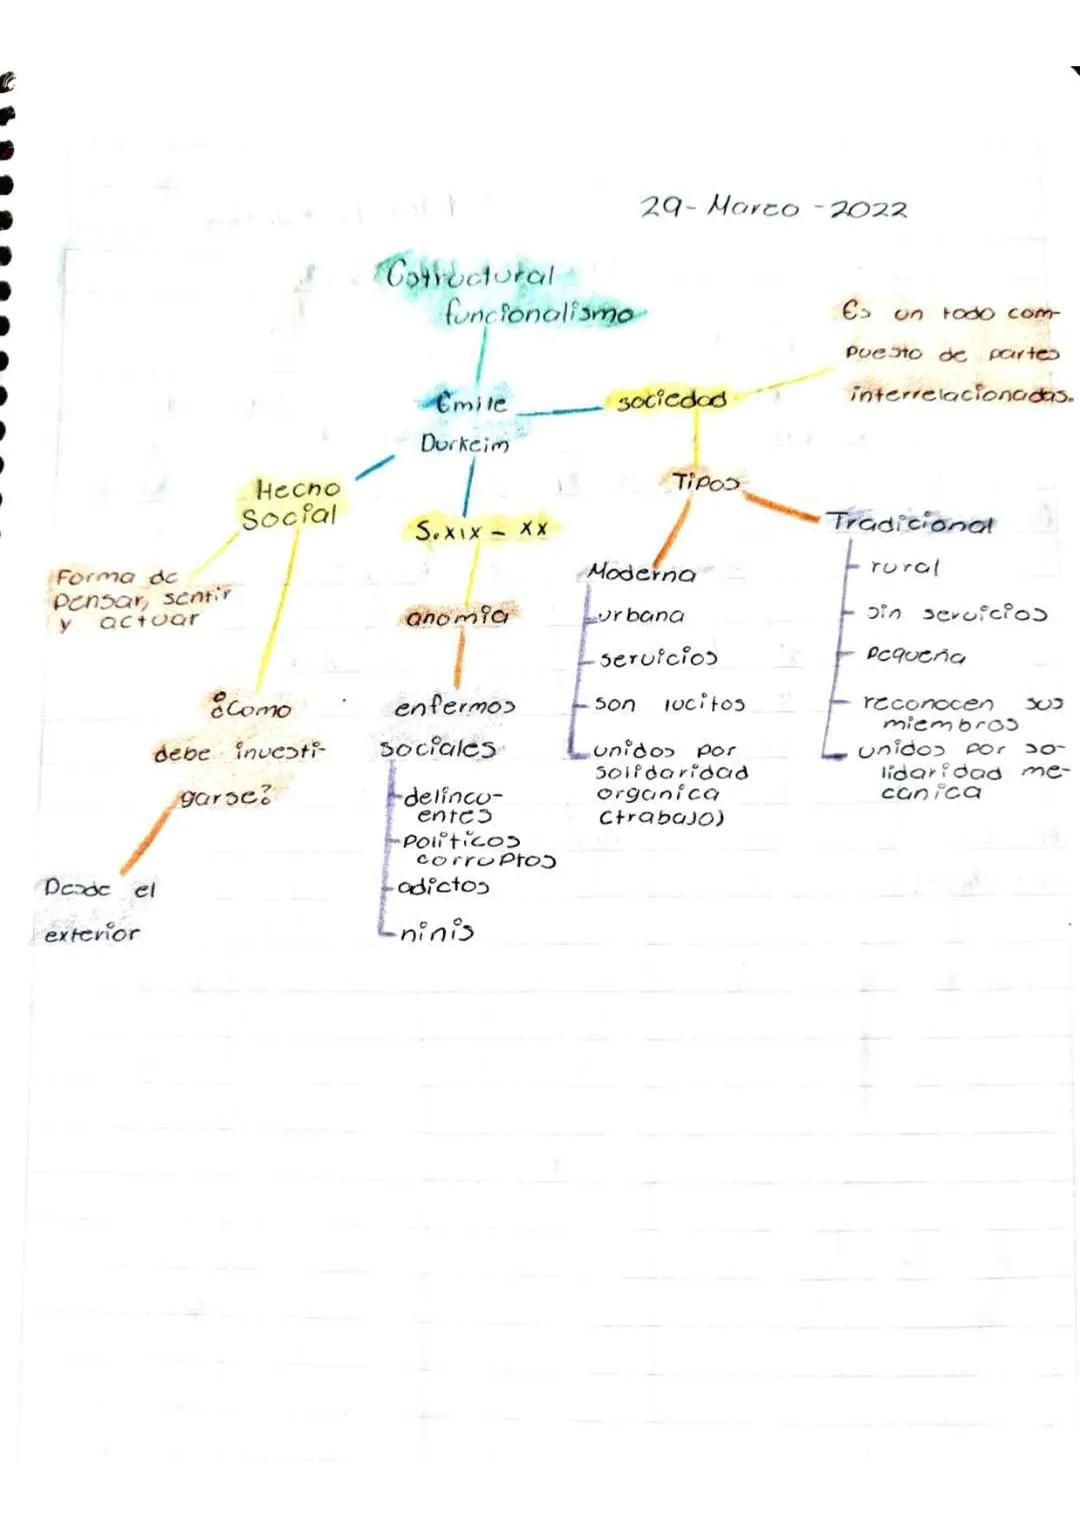 29-Marzo-2022
Estructural
funcionalismo
Es un todo com-
puesto de partes
interrelacionadas.
Emile
Durkeim
sociedad
Hecho
Social
S.XIX - XX
Tipos
Tradicional
rural
sin servicios
pequeña
reconocen sus
miembros
unidos por so-
lidaridad me-
canica
Moderna
urbana
servicios
son
unidos por
solidaridad
organica
(trabajo)
Forma de
pensar, sentir
y actuar
anomia
¿Como
debe investi-
garse?
enfermos
sociales
delincu-
entes
politicos
corruptos
adictos
ninis
Desde el
exterior